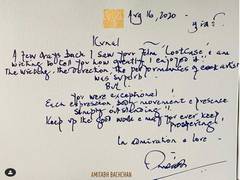 Aug 16, 2020
Kunal
A few days back I saw your film 'Lootcase' &
wishing to tell you how greatly I enjoyed it
The writing, the direction, the performances of each artist
was superb!
BUT!
You were exceptional!
Each expression body movement & presence
simply outstanding!
Keep up the good work & may you ever keep
prospering!
In admiration & love -
AMITABH BACHCHAN